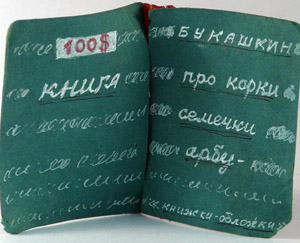 100$
книга
БУКАШКИН
про корки
семечки
арбу-
книжки-обложки